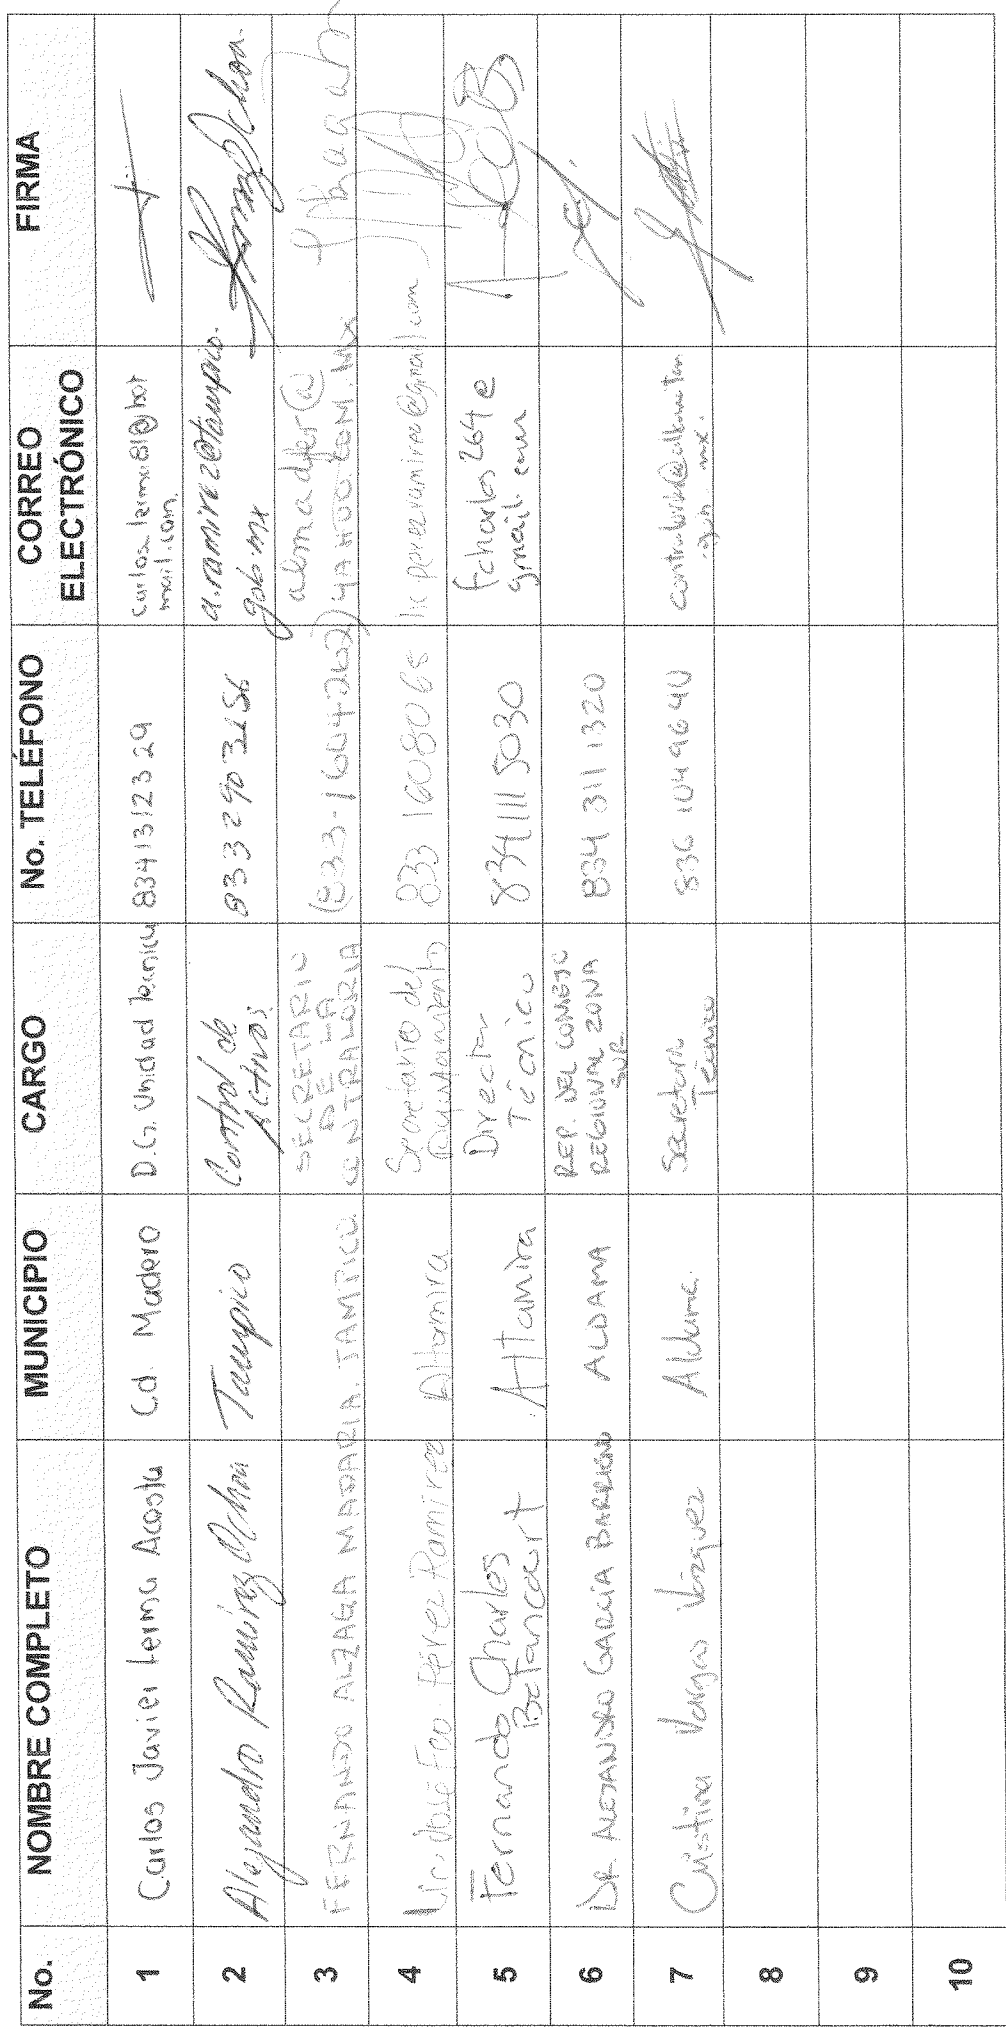 No. NOMBRE COMPLETO MUNICIPIO CARGO No. TELÉFONO CORREO ELECTRÓNICO FIRMA
1 Carlos Javier Lerma Acosta Cd. Madero D.G. Unidad Tecnica 8341312329 carlos.lerma81@hotmail.com.
2 Alejandro Ramirez Ochoa Tampico Control de Activos. a.ramirez@tampico.gob.mx
3 FERNANDO ALZAGA MADARIA. TAMPICO. SECRETARIO DE LA CONTRALORIA (833-1604262) almadfer@YAHOO.COM.MX
4 Lic. José Fco. Pérez Ramírez Altamira Secretario del Ayuntamiento 833 1608065 lic.perezramirez@gmail.com
5 Fernando Charlos Betancourt Altamira Director Técnico 834 111 5030 fcharlos264@gmail.com
6 DR. ALEJANDRO GARCÍA BARRIENTOS ALDAMA REP. DEL CONSEJO REGIONAL ZONA SUR 834 311 1320
7 Cristina Vargas Vázquez Aldama. Secretaria Técnico 836 1049640
8
9
10